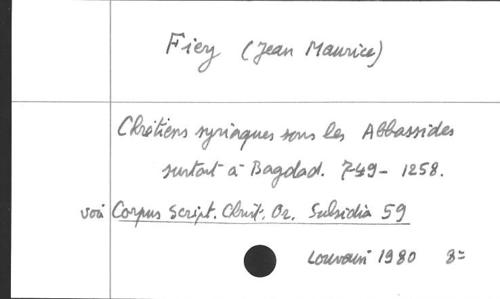 Fiey (Jean Maurice)
Chrétiens syriaques sous les Abbassides
surtout à Bagdad. 749-1258.
voir Corpus Script. Christ. Or. Subsidia 59
Louvain 1980 8=